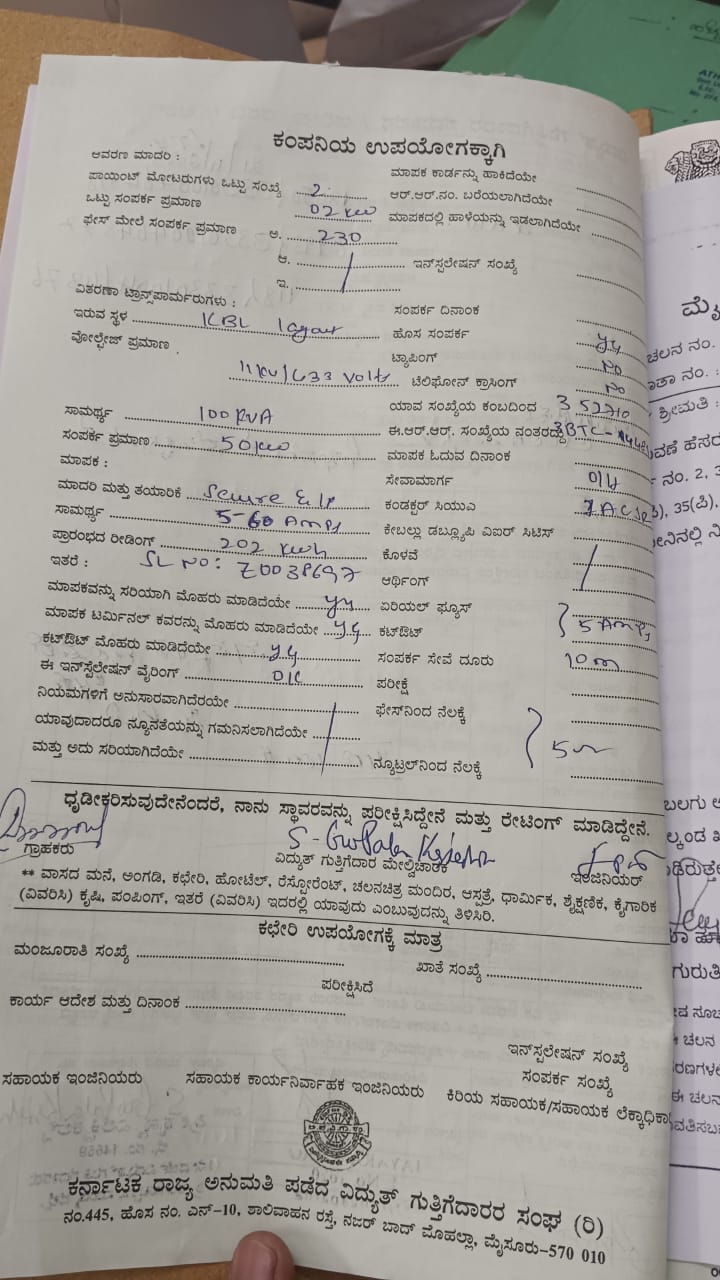 ಕಂಪನಿಯ ಉಪಯೋಗಕ್ಕಾಗಿ
ಆವರಣ ಮಾದರಿ :
ಮಾಪಕ ಕಾರ್ಡನ್ನು ಹಾಕಿದೆಯೇ
ಪಾಯಿಂಟ್ ಮೋಟರುಗಳು ಒಟ್ಟು ಸಂಖ್ಯೆ 2
ಆರ್.ಆರ್.ನಂ. ಬರೆಯಲಾಗಿದೆಯೇ
ಒಟ್ಟು ಸಂಪರ್ಕ ಪ್ರಮಾಣ 02 kw
ಮಾಪಕದಲ್ಲಿ ಹಾಳೆಯನ್ನು ಇಡಲಾಗಿದೆಯೇ
ಫೇಸ್ ಮೇಲೆ ಸಂಪರ್ಕ ಪ್ರಮಾಣ ಅ. 230
ಆ. ಇನ್‌ಸ್ಟಲೇಷನ್ ಸಂಖ್ಯೆ
ಇ.
ವಿತರಣಾ ಟ್ರಾನ್ಸ್‌ಪಾರ್ಮರುಗಳು :
ಸಂಪರ್ಕ ದಿನಾಂಕ
ಇರುವ ಸ್ಥಳ ICBL layout
ಹೊಸ ಸಂಪರ್ಕ yy
ವೋಲ್ಟೇಜ್ ಪ್ರಮಾಣ
ಟ್ಯಾಪಿಂಗ್ No
11 kv/433 Volts
ಟೆಲಿಫೋನ್ ಕ್ರಾಸಿಂಗ್ No
ಸಾಮರ್ಥ್ಯ 100 KVA
ಯಾವ ಸಂಖ್ಯೆಯ ಕಂಬದಿಂದ 352710
ಸಂಪರ್ಕ ಪ್ರಮಾಣ 50 kw
ಈ.ಆರ್.ಆರ್. ಸಂಖ್ಯೆಯ ನಂತರದ್ದೆ
ಮಾಪಕ :
ಮಾಪಕ ಓದುವ ದಿನಾಂಕ
ಮಾದರಿ ಮತ್ತು ತಯಾರಿಕೆ Secure
ಸೇವಾಮಾರ್ಗ O/H
ಸಾಮರ್ಥ್ಯ 5-60 Amps
ಕಂಡಕ್ಟರ್ ಸಿಯುಎ
ಪ್ರಾರಂಭದ ರೀಡಿಂಗ್ 202 kwh
ಕೇಬಲ್ಲು ಡಬ್ಲ್ಯೂಪಿ ಎಐರ್ ಸಿಟಿಸ್
ಇತರೆ : SL NO: Z0038697
ಕೊಳವೆ
ಆರ್ಥಿಂಗ್
ಮಾಪಕವನ್ನು ಸರಿಯಾಗಿ ಮೊಹರು ಮಾಡಿದೆಯೇ yy
ಏರಿಯಲ್ ಫ್ಯೂಸ್
ಮಾಪಕ ಟರ್ಮಿನಲ್ ಕವರನ್ನು ಮೊಹರು ಮಾಡಿದೆಯೇ yy
ಕಟ್‌ಔಟ್ 5 Amps
ಕಟ್‌ಔಟ್ ಮೊಹರು ಮಾಡಿದೆಯೇ yy
ಸಂಪರ್ಕ ಸೇವೆ ದೂರು 10m
ಈ ಇನ್‌ಸ್ಟಲೇಷನ್ ವೈರಿಂಗ್ O/C
ಪರೀಕ್ಷೆ
ನಿಯಮಗಳಿಗೆ ಅನುಸಾರವಾಗಿದೆರಯೇ
ಫೇಸ್‌ನಿಂದ ನೆಲಕ್ಕೆ
ಯಾವುದಾದರೂ ನ್ಯೂನತೆಯನ್ನು ಗಮನಿಸಲಾಗಿದೆಯೇ
ಮತ್ತು ಅದು ಸರಿಯಾಗಿದೆಯೇ
ನ್ಯೂಟ್ರಲ್‌ನಿಂದ ನೆಲಕ್ಕೆ
ಧೃಡೀಕರಿಸುವುದೇನೆಂದರೆ, ನಾನು ಸ್ಥಾವರವನ್ನು ಪರೀಕ್ಷಿಸಿದ್ದೇನೆ ಮತ್ತು ರೇಟಿಂಗ್ ಮಾಡಿದ್ದೇನೆ.
ಗ್ರಾಹಕರು
ವಿದ್ಯುತ್ ಗುತ್ತಿಗೆದಾರ ಮೇಲ್ವಿಚಾರಕ
ಇಂಜಿನಿಯರ್
** ವಾಸದ ಮನೆ, ಅಂಗಡಿ, ಕಛೇರಿ, ಹೋಟೆಲ್, ರೆಸ್ಟೋರೆಂಟ್, ಚಲನಚಿತ್ರ ಮಂದಿರ, ಆಸ್ಪತ್ರೆ, ಧಾರ್ಮಿಕ, ಶೈಕ್ಷಣಿಕ, ಕೈಗಾರಿಕ
(ವಿವರಿಸಿ) ಕೃಷಿ, ಪಂಪಿಂಗ್, ಇತರೆ (ವಿವರಿಸಿ) ಇದರಲ್ಲಿ ಯಾವುದು ಎಂಬುವುದನ್ನು ತಿಳಿಸಿರಿ.
ಕಛೇರಿ ಉಪಯೋಗಕ್ಕೆ ಮಾತ್ರ
ಮಂಜೂರಾತಿ ಸಂಖ್ಯೆ
ಖಾತೆ ಸಂಖ್ಯೆ
ಪರೀಕ್ಷಿಸಿದೆ
ಕಾರ್ಯ ಆದೇಶ ಮತ್ತು ದಿನಾಂಕ
ಇನ್‌ಸ್ಟಲೇಷನ್ ಸಂಖ್ಯೆ
ಸಂಪರ್ಕ ಸಂಖ್ಯೆ
ಸಹಾಯಕ ಇಂಜಿನಿಯರು
ಸಹಾಯಕ ಕಾರ್ಯನಿರ್ವಾಹಕ ಇಂಜಿನಿಯರು
ಕಿರಿಯ ಸಹಾಯಕ/ಸಹಾಯಕ ಲೆಕ್ಕಾಧಿಕಾ
ಕರ್ನಾಟಕ ರಾಜ್ಯ ಅನುಮತಿ ಪಡೆದ ವಿದ್ಯುತ್ ಗುತ್ತಿಗೆದಾರರ ಸಂಘ (ರಿ)
ನಂ.445, ಹೊಸ ನಂ. ಎನ್-10, ಶಾಲಿವಾಹನ ರಸ್ತೆ, ನಜರ್ ಬಾದ್ ಮೊಹಲ್ಲಾ, ಮೈಸೂರು-570 010